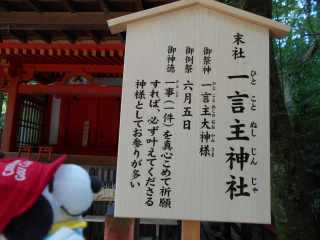 末社
一言主神社
ひとことぬしじんじゃ
御祭神 一言主大神様
御例祭 六月五日
御神徳 一事(一件)を真心こめて祈願
すれば、必ず叶えてくださる
神様としてお参りが多い